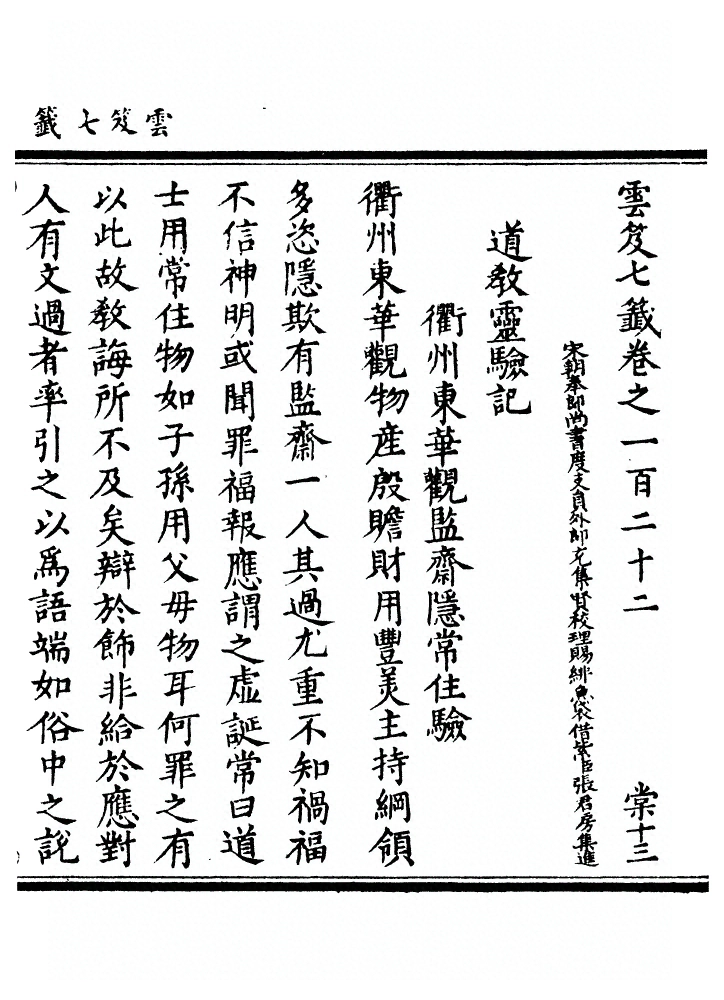 雲笈七籤
雲笈七籤卷之一百二十二 棠十三
宋朝奉郎尚書度支員外郎充集賢校理賜緋魚袋借紫臣張君房集進
道教靈驗記
衢州東華觀監齋隱常住驗
衢州東華觀物產殷贍財用豐羙主持綱領
多恣隱欺有監齋一人其過尤重不知禍福
不信神明或聞罪福報應謂之虛誕常曰道
士用常住物如子孫用父母物耳何罪之有
以此故教誨所不及矣辯於飾非給於應對
人有文過者率引之以爲語端如俗中之說